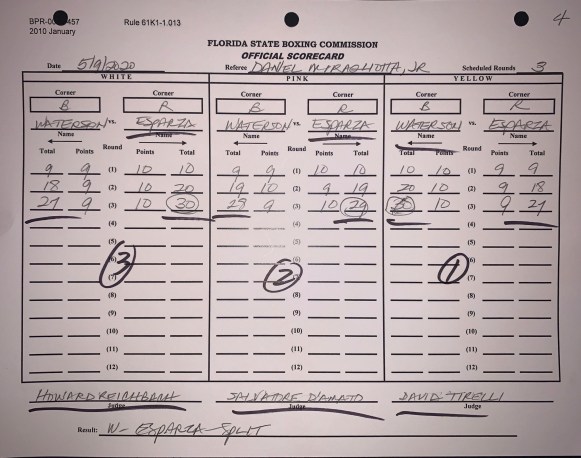 BPR- 457 Rule 61K1-1.013 4
2010 January
FLORIDA STATE BOXING COMMISSION
OFFICIAL SCORECARD
Date 5/9/2020 Referee DANIEL MIRAGLIOTTA, JR Scheduled Rounds 3
WHITE PINK YELLOW
Corner Corner Corner Corner Corner Corner
B R B R B R
WATERSON vs. ESPARZA WATERSON vs. ESPARZA WATERSON vs. ESPARZA
Name Name Name Name Name Name
Total Points Round Points Total Total Points Round Points Total Total Points Round Points Total
9 9 (1) 10 10 9 9 (1) 10 10 10 10 (1) 9 9
18 9 (2) 10 20 19 10 (2) 9 19 20 10 (2) 9 18
27 9 (3) 10 30 28 9 (3) 10 29 30 10 (3) 9 27
(4) (4) (4)
(5) (5) (5)
(6) (6) (6)
3 2 1
(7) (7) (7)
(8) (8) (8)
(9) (9) (9)
(10) (10) (10)
(11) (11) (11)
(12) (12) (12)
HOWARD SALVATORE D'AMATO DAVID TIRELLI
Judge Judge Judge
Result: W- ESPARZA-SPLIT